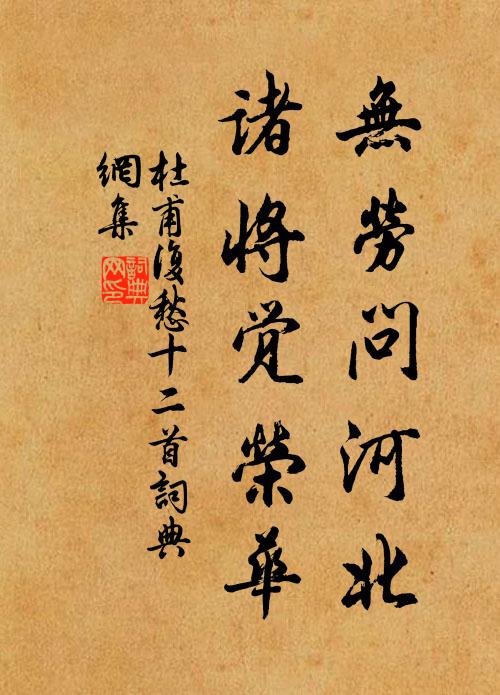 無勞問河北
諸將覚榮華
杜甫復愁十二首詞典
網集
詞典
网印